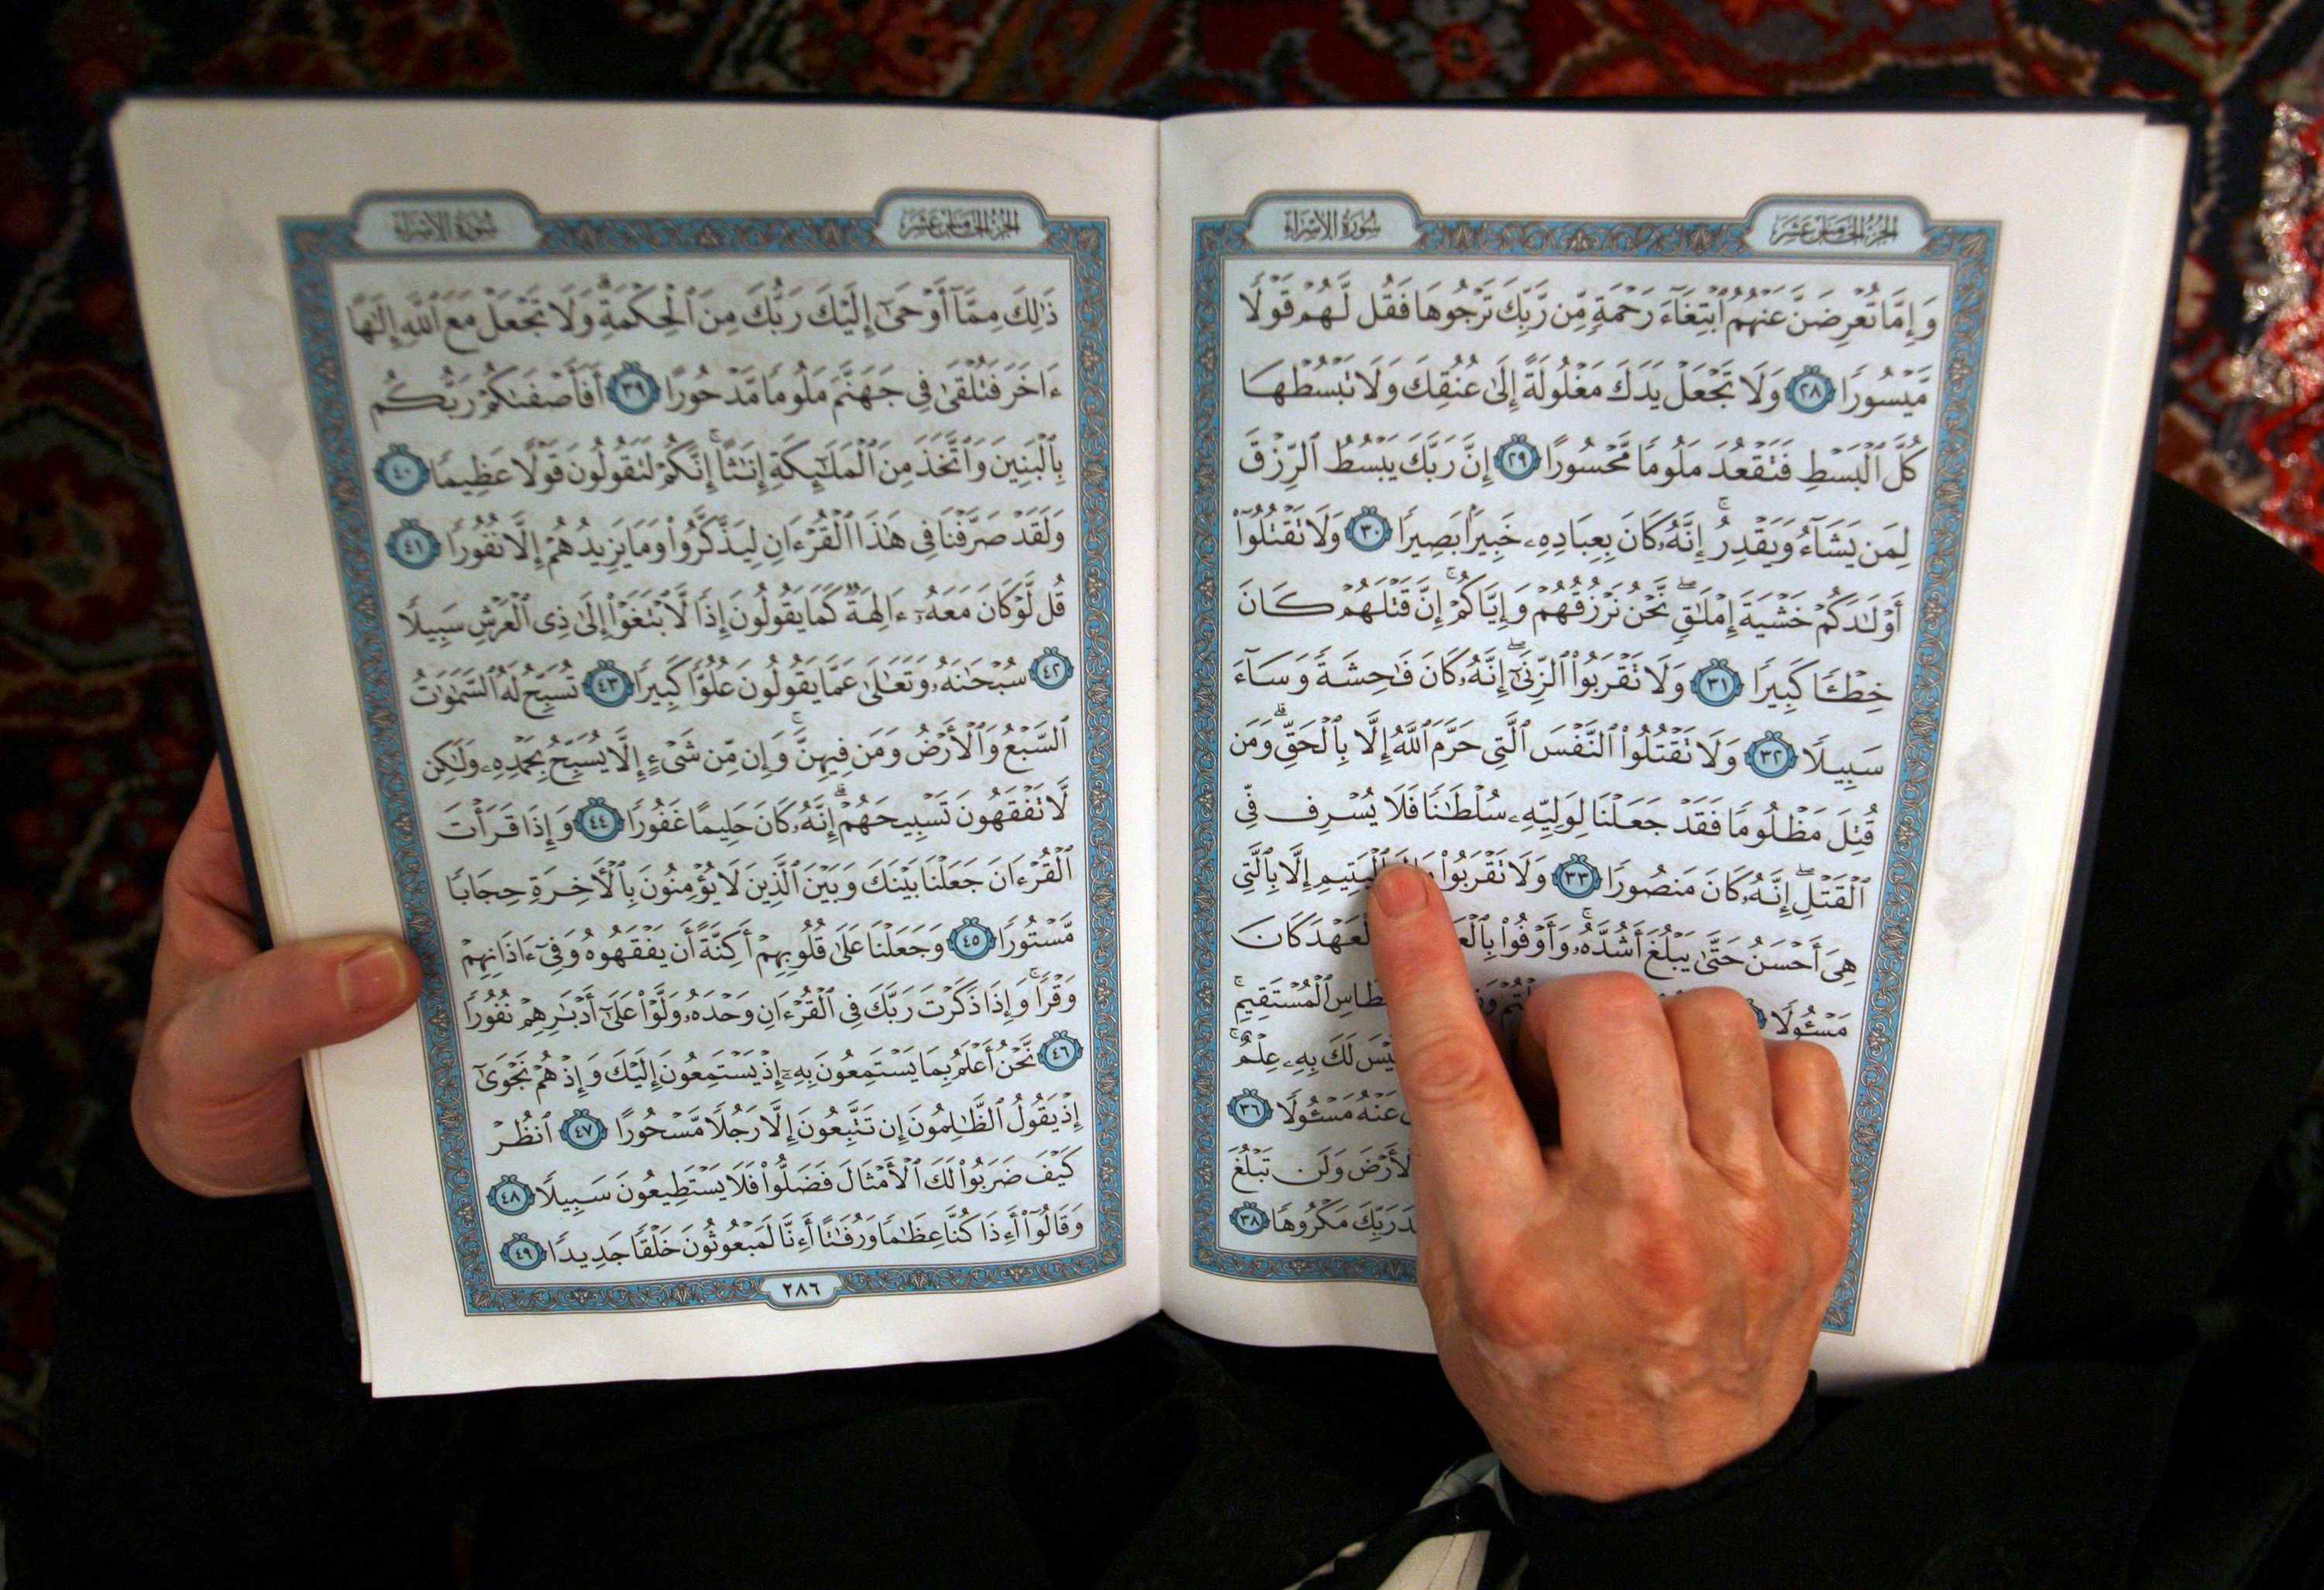 الجزء الخامس عشر
سورة الإسراء
وَإِمَّا تُعْرِضَنَّ عَنْهُمُ ٱبْتِغَآءَ رَحْمَةٍ مِّن رَّبِّكَ تَرْجُوهَا فَقُل لَّهُمْ قَوْلًا
مَّيْسُورًا ٢٨ وَلَا تَجْعَلْ يَدَكَ مَغْلُولَةً إِلَىٰ عُنُقِكَ وَلَا تَبْسُطْهَا
كُلَّ ٱلْبَسْطِ فَتَقْعُدَ مَلُومًا مَّحْسُورًا ٢٩ إِنَّ رَبَّكَ يَبْسُطُ ٱلرِّزْقَ
لِمَن يَشَآءُ وَيَقْدِرُ ۚ إِنَّهُۥ كَانَ بِعِبَادِهِۦ خَبِيرًۢا بَصِيرًا ٣٠ وَلَا تَقْتُلُوٓا۟
أَوْلَٰدَكُمْ خَشْيَةَ إِمْلَٰقٍ ۖ نَّحْنُ نَرْزُقُهُمْ وَإِيَّاكُمْ ۚ إِنَّ قَتْلَهُمْ كَانَ
خِطْـًٔا كَبِيرًا ٣١ وَلَا تَقْرَبُوا۟ ٱلزِّنَىٰٓ ۖ إِنَّهُۥ كَانَ فَٰحِشَةً وَسَآءَ
سَبِيلًا ٣٢ وَلَا تَقْتُلُوا۟ ٱلنَّفْسَ ٱلَّتِى حَرَّمَ ٱللَّهُ إِلَّا بِٱلْحَقِّ ۗ وَمَن
قُتِلَ مَظْلُومًا فَقَدْ جَعَلْنَا لِوَلِيِّهِۦ سُلْطَٰنًا فَلَا يُسْرِف فِّى
ٱلْقَتْلِ ۖ إِنَّهُۥ كَانَ مَنصُورًا ٣٣ وَلَا تَقْرَبُوا۟ ٱلْيَتِيمِ إِلَّا بِٱلَّتِى
هِىَ أَحْسَنُ حَتَّىٰ يَبْلُغَ أَشُدَّهُۥ ۚ وَأَوْفُوا۟ ٱلْعَهْدَ كَانَ
مَسْـُٔولًا ٱلْمُسْتَقِيمِ ۚ
لَيْسَ لَكَ بِهِۦ عِلْمٌ ۚ
عَنْهُ مَسْـُٔولًا ٣٦
ٱلْأَرْضَ وَلَن تَبْلُغَ
رَبِّكَ مَكْرُوهًا ٣٨
الجزء الخامس عشر
سورة الإسراء
ذَٰلِكَ مِمَّآ أَوْحَىٰٓ إِلَيْكَ رَبُّكَ مِنَ ٱلْحِكْمَةِ ۗ وَلَا تَجْعَلْ مَعَ ٱللَّهِ إِلَٰهًا
ءَاخَرَ فَتُلْقَىٰ فِى جَهَنَّمَ مَلُومًا مَّدْحُورًا ٣٩ أَفَأَصْفَىٰكُمْ رَبُّكُم
بِٱلْبَنِينَ وَٱتَّخَذَ مِنَ ٱلْمَلَٰٓئِكَةِ إِنَٰثًا ۚ إِنَّكُمْ لَتَقُولُونَ قَوْلًا عَظِيمًا ٤٠
وَلَقَدْ صَرَّفْنَا فِى هَٰذَا ٱلْقُرْءَانِ لِيَذَّكَّرُوا۟ وَمَا يَزِيدُهُمْ إِلَّا نُفُورًا ٤١
قُل لَّوْ كَانَ مَعَهُۥٓ ءَالِهَةٌ كَمَا يَقُولُونَ إِذًا لَّٱبْتَغَوْا۟ إِلَىٰ ذِى ٱلْعَرْشِ سَبِيلًا
٤٢ سُبْحَٰنَهُۥ وَتَعَٰلَىٰ عَمَّا يَقُولُونَ عُلُوًّا كَبِيرًا ٤٣ تُسَبِّحُ لَهُ ٱلسَّمَٰوَٰتُ
ٱلسَّبْعُ وَٱلْأَرْضُ وَمَن فِيهِنَّ ۚ وَإِن مِّن شَىْءٍ إِلَّا يُسَبِّحُ بِحَمْدِهِۦ وَلَٰكِن
لَّا تَفْقَهُونَ تَسْبِيحَهُمْ ۗ إِنَّهُۥ كَانَ حَلِيمًا غَفُورًا ٤٤ وَإِذَا قَرَأْتَ
ٱلْقُرْءَانَ جَعَلْنَا بَيْنَكَ وَبَيْنَ ٱلَّذِينَ لَا يُؤْمِنُونَ بِٱلْأَخِرَةِ حِجَابًا
مَّسْتُورًا ٤٥ وَجَعَلْنَا عَلَىٰ قُلُوبِهِمْ أَكِنَّةً أَن يَفْقَهُوهُ وَفِىٓ ءَاذَانِهِمْ
وَقْرًا ۚ وَإِذَا ذَكَرْتَ رَبَّكَ فِى ٱلْقُرْءَانِ وَحْدَهُۥ وَلَّوْا۟ عَلَىٰٓ أَدْبَٰرِهِمْ نُفُورًا
٤٦ نَّحْنُ أَعْلَمُ بِمَا يَسْتَمِعُونَ بِهِۦٓ إِذْ يَسْتَمِعُونَ إِلَيْكَ وَإِذْ هُمْ نَجْوَىٰٓ
إِذْ يَقُولُ ٱلظَّٰلِمُونَ إِن تَتَّبِعُونَ إِلَّا رَجُلًا مَّسْحُورًا ٤٧ ٱنظُرْ
كَيْفَ ضَرَبُوا۟ لَكَ ٱلْأَمْثَالَ فَضَلُّوا۟ فَلَا يَسْتَطِيعُونَ سَبِيلًا ٤٨
وَقَالُوٓا۟ أَءِذَا كُنَّا عِظَٰمًا وَرُفَٰتًا أَءِنَّا لَمَبْعُوثُونَ خَلْقًا جَدِيدًا ٤٩
٢٨٦